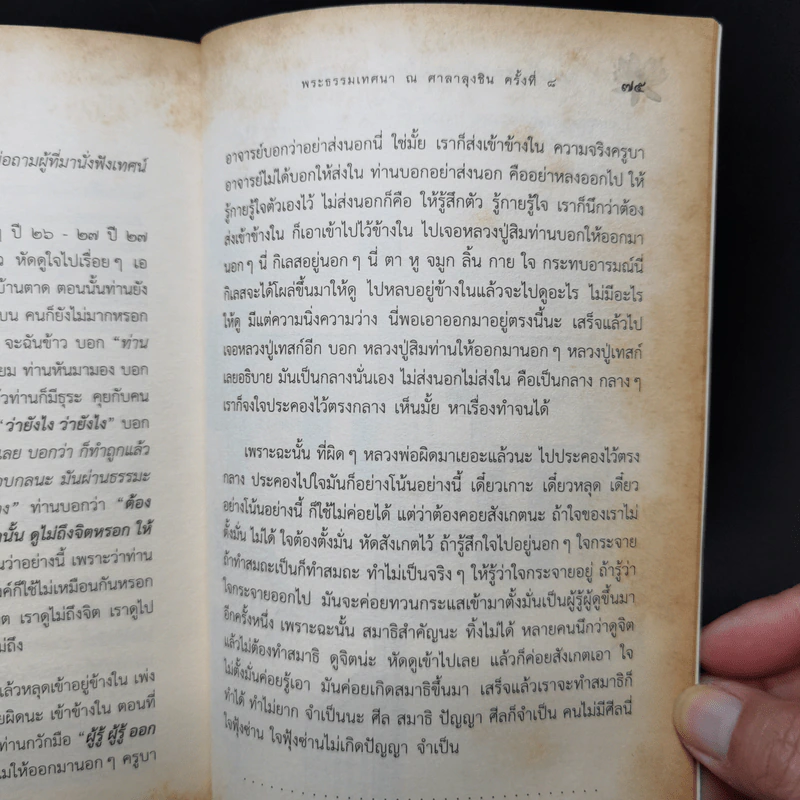 อถามผู้ที่มานั่งฟังเทศน์
ๆ ปี ๒๖ - ๒๗ ปี ๒๗
หัดดูใจไปเรื่อยๆ เอ
บ้านตาด ตอนนั้นท่านยัง
บน คนก็ยังไม่มากหรอก
จะฉันข้าว บอก “ท่าน
ยม ท่านหันมามอง บอก
ท่านก็มีธุระ คุยกับคน
“ว่ายังไง ว่ายังไง” บอก
เลย บอกว่า ก็ทำถูกแล้ว
บกลนะ มันผ่านธรรมะ
ท่านบอกว่า “ต้อง
นั้น ดูไม่ถึงจิตหรอก ให้
นว่าอย่างนี้ เพราะว่าท่าน
งค์ก็ใช้ไม่เหมือนกันหรอก
ต เราดูไม่ถึงจิต เราดูไป
ม่ถึง
ล้วหลุดเข้าอยู่ข้างใน เพ่ง
ยผิดนะ เข้าข้างใน ตอนที่
ท่านกวักมือ “ผู้รู้ ผู้รู้ ออก
ม่ให้ออกมานอกๆ ครูบา
พระธรรมเทศนา ณ ศาลาลุงชิน ครั้งที่ ๘
๗๕
อาจารย์บอกว่าอย่าส่งนอกนี่ ใช่มั้ย เราก็ส่งเข้าข้างใน ความจริงครูบา
อาจารย์ไม่ได้บอกให้ส่งใน ท่านบอกอย่าส่งนอก คืออย่าหลงออกไป ให้
รู้กายรู้ใจตัวเองไว้ ไม่ส่งนอกก็คือ ให้รู้สึกตัว รู้กายรู้ใจ เราก็นึกว่าต้อง
ส่งเข้าข้างใน ก็เอาเข้าไปไว้ข้างใน ไปเจอหลวงปู่สิมท่านบอกให้ออกมา
นอกๆ นี่ กิเลสอยู่นอกๆ นี่ ตา หู จมูก ลิ้น กาย ใจ กระทบอารมณ์นี่
กิเลสจะได้โผล่ขึ้นมาให้ดู ไปหลบอยู่ข้างในแล้วจะไปดูอะไร ไม่มีอะไร
ให้ดู มีแต่ความนิ่งความว่าง นี่พอเอาออกมาอยู่ตรงนี้นะ เสร็จแล้วไป
เจอหลวงปู่เทสก์อีก บอก หลวงปู่สิมท่านให้ออกมานอกๆ หลวงปู่เทสก์
เลยอธิบาย มันเป็นกลางนั่นเอง ไม่ส่งนอกไม่ส่งใน คือเป็นกลาง กลางๆ
เราก็จงใจประคองไว้ตรงกลาง เห็นมั้ย หาเรื่องทำจนได้
เพราะฉะนั้น ที่ผิดๆ หลวงพ่อผิดมาเยอะแล้วนะ ไปประคองไว้ตรง
กลาง ประคองไปใจมันก็อย่างโน้นอย่างนี้ เดี๋ยวเกาะ เดี๋ยวหลุด เดี๋ยว
อย่างโน้นอย่างนี้ ก็ใช้ไม่ค่อยได้ แต่ว่าต้องคอยสังเกตนะ ถ้าใจของเราไม่
ตั้งมั่น ไม่ได้ ใจต้องตั้งมั่น หัดสังเกตไว้ ถ้ารู้สึกใจไปอยู่นอกๆ ใจกระจาย
ถ้าทำสมถะเป็นก็ทำสมถะ ทำไม่เป็นจริงๆ ให้รู้ว่าใจกระจายอยู่ ถ้ารู้ว่า
ใจกระจายออกไป มันจะค่อยทวนกระแสเข้ามาตั้งมั่นเป็นผู้รู้ผู้ดูขึ้นมา
อีกครั้งหนึ่ง เพราะฉะนั้น สมาธิสำคัญนะ ทิ้งไม่ได้ หลายคนนึกว่าดูจิต
แล้วไม่ต้องทำสมาธิ ดูจิตน่ะ หัดดูเข้าไปเลย แล้วก็ค่อยสังเกตเอา ใจ
ไม่ตั้งมั่นค่อยรู้เอา มันค่อยเกิดสมาธิขึ้นมา เสร็จแล้วเราจะทำสมาธิก็
ทำได้ ทำไม่ยาก จำเป็นนะ ศีล สมาธิ ปัญญา ศีลก็จำเป็น คนไม่มีศีลนี่
ใจฟุ้งซ่าน ใจฟุ้งซ่านไม่เกิดปัญญา จำเป็น